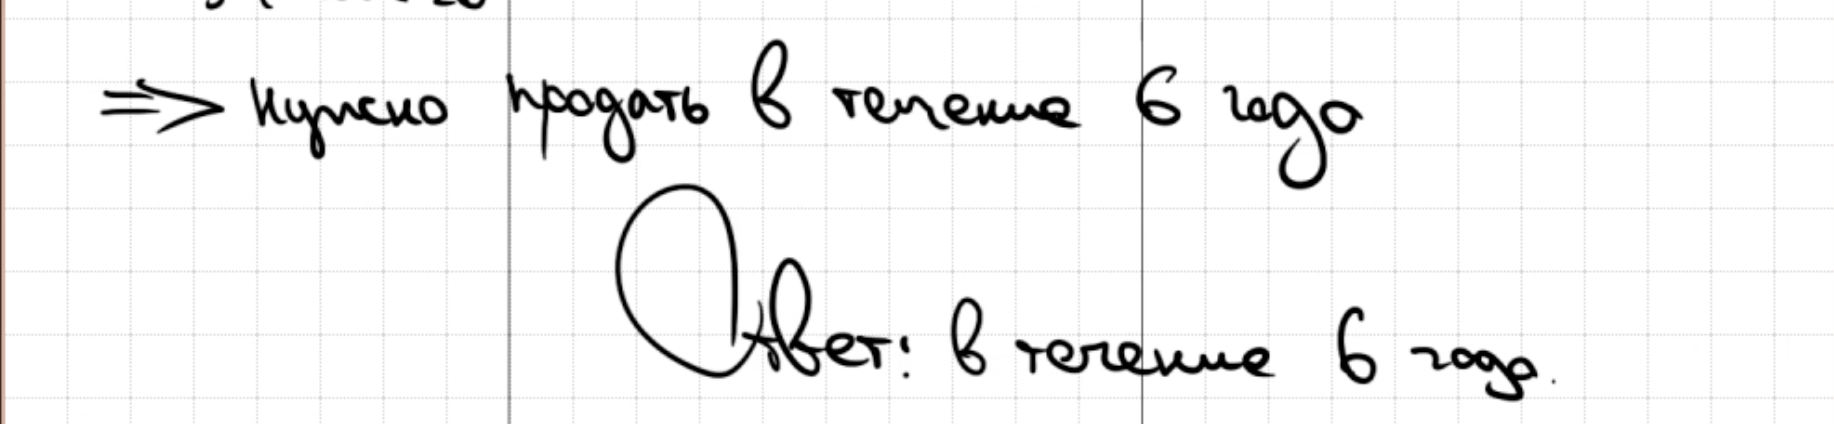 ⇒ Нужно продать в течение 6 года
Ответ: в течение 6 года.